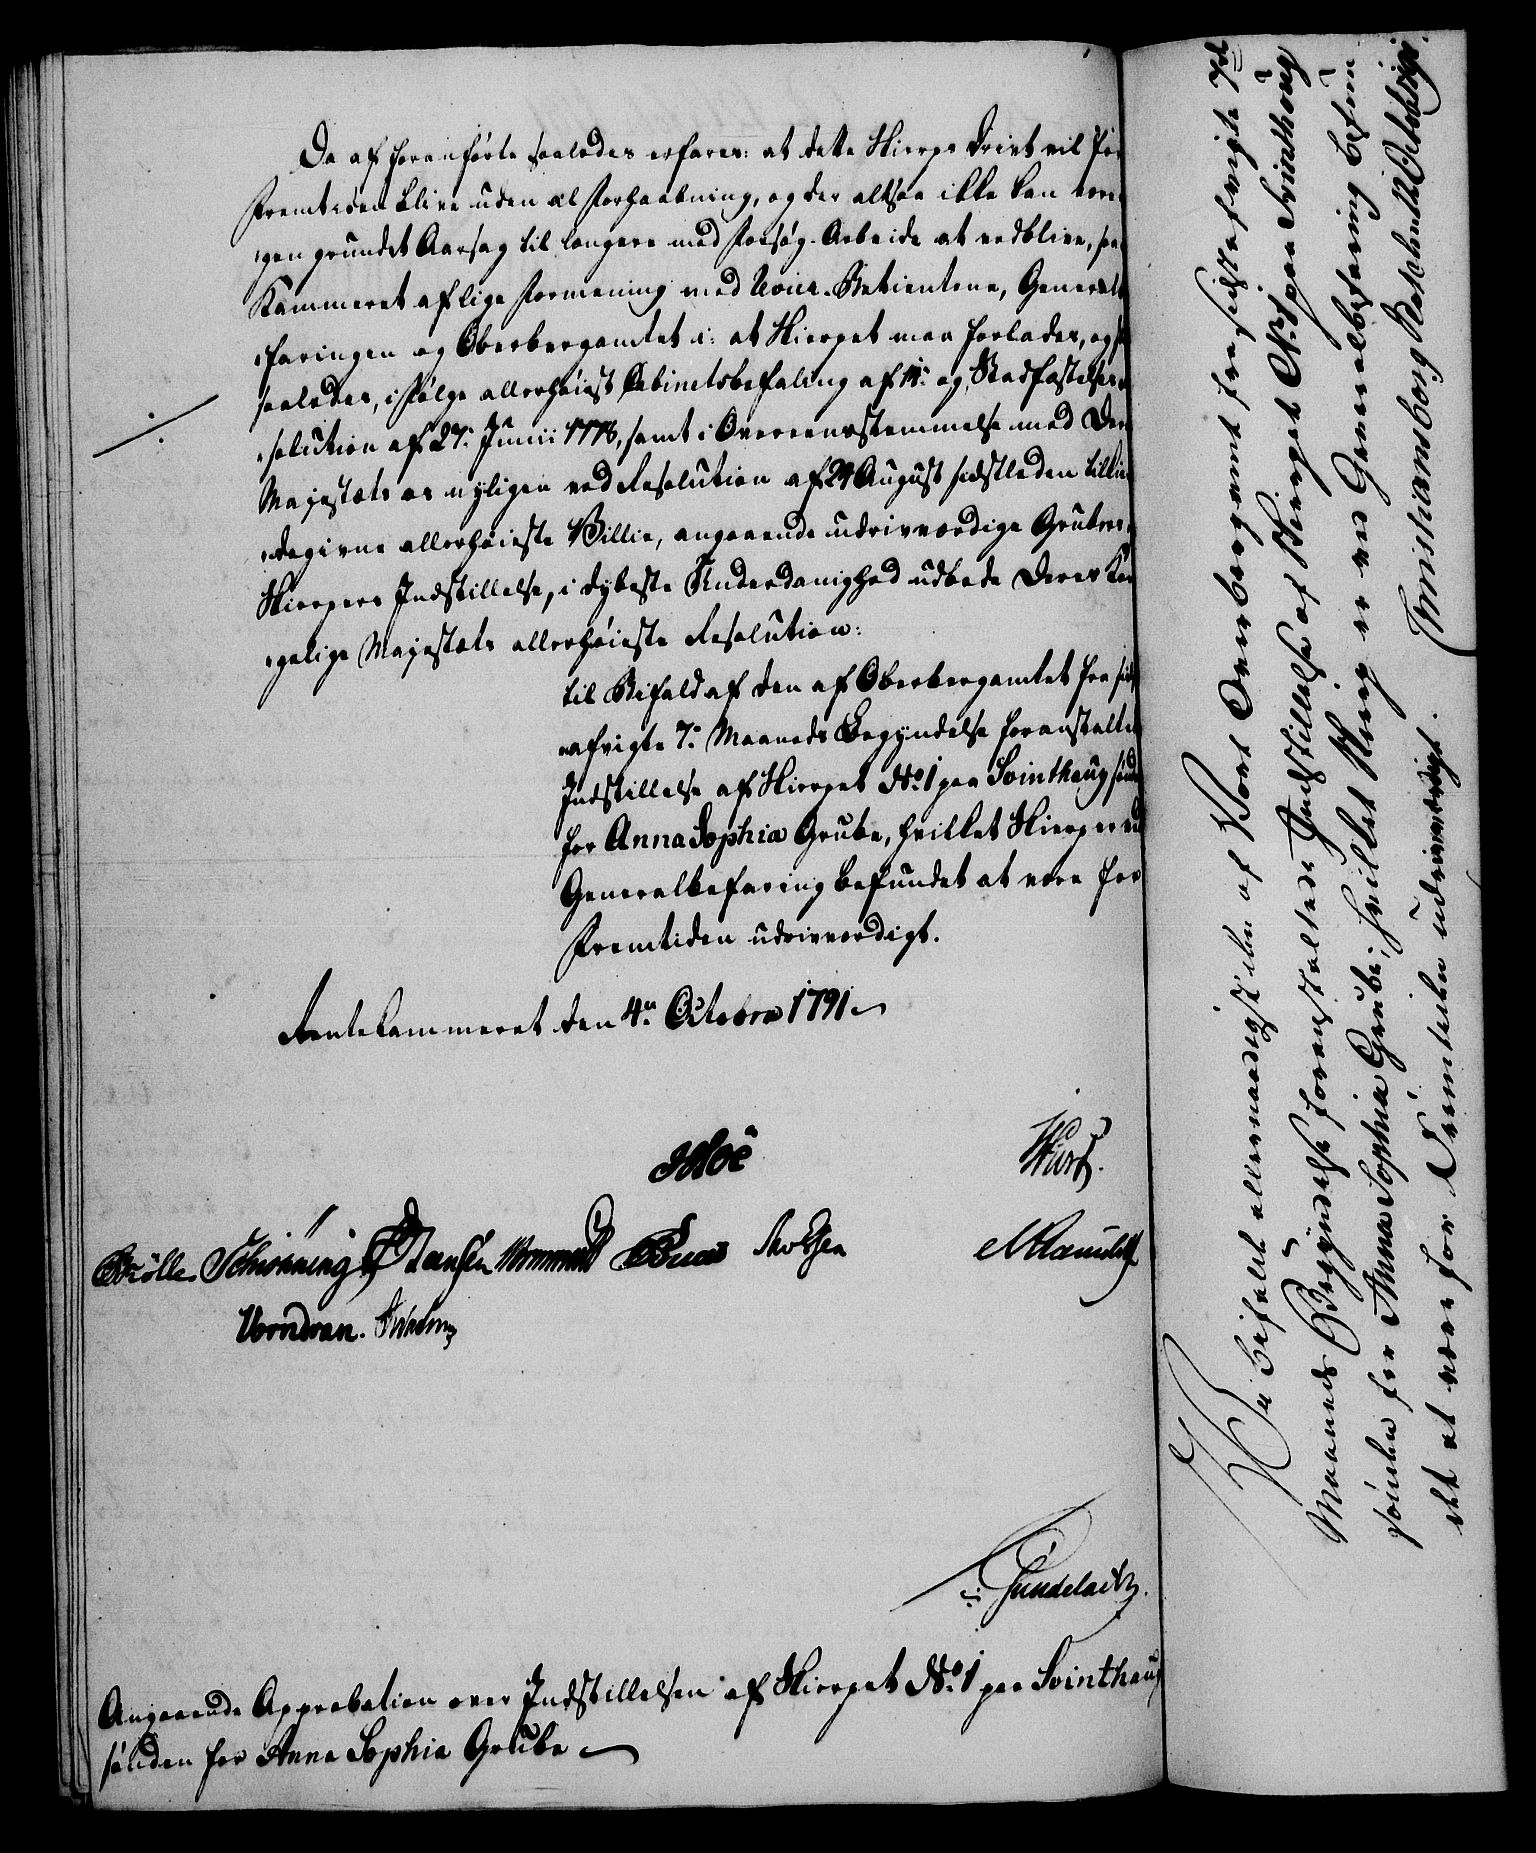 Da af foranførte saaledes erfares: at dette Skierps Drivt vil for
Fremtiden blive uden al Forhaabning, og der altsaa ikke kan være
gen grundet Aarsag til længere med Forsøg-Arbeide at vedblive, saa
Kammeret af lige Formening med Betientene, General
faringen og Oberbergamtet i: at Skierpet maa forlades, og
saaledes, i Følge allerhøieste Cabinetsbefaling af 11. og Stadfæstelses
solution af 27. Junii 1778, samt i Overeensstemmelse med Deres
Majestæts os nyligen ved Resolution af 24 August sidstleden tillie
degivne allerhøieste Villie, angaaende udrivværdige Grubers
Skierpers Indstillelse, i dybeste Underdanighed udbede Deres Kon
gelige Majestæts allerhøieste Resolution:
til Bifald af den af Oberbergamtet fra sidst
afvigte 7. Maaneds Begyndelse foranstaltede
Indstillelse af Skierpet No. 1 paa Svinthaug sønden
for Anna Sophia Grube, hvilket Skierp er ved
Generalbefaring befundet at være for
Fremtiden udrivværdigt.
Rentekammeret den 4. Octobre 1791
Schiønning
Vorndran.
Angaaende Approbation over Indstillelsen af Skierpet No. 1 paa Svinthaug
sønden for Anna Sophia Grube
Vi bifalde allernaadigst den af Vort Overbergamt fra sidstafvigte 7de
Maaneds Begyndelse foranstaltede Indstillelse af Skierpet No. 1 paa Svinthoug
sønden for Anna Sophia Grube; hvilket Skierp er ved Generalbefaring befun
det at være for Fremtiden udrivværdigt.
Christiansborg